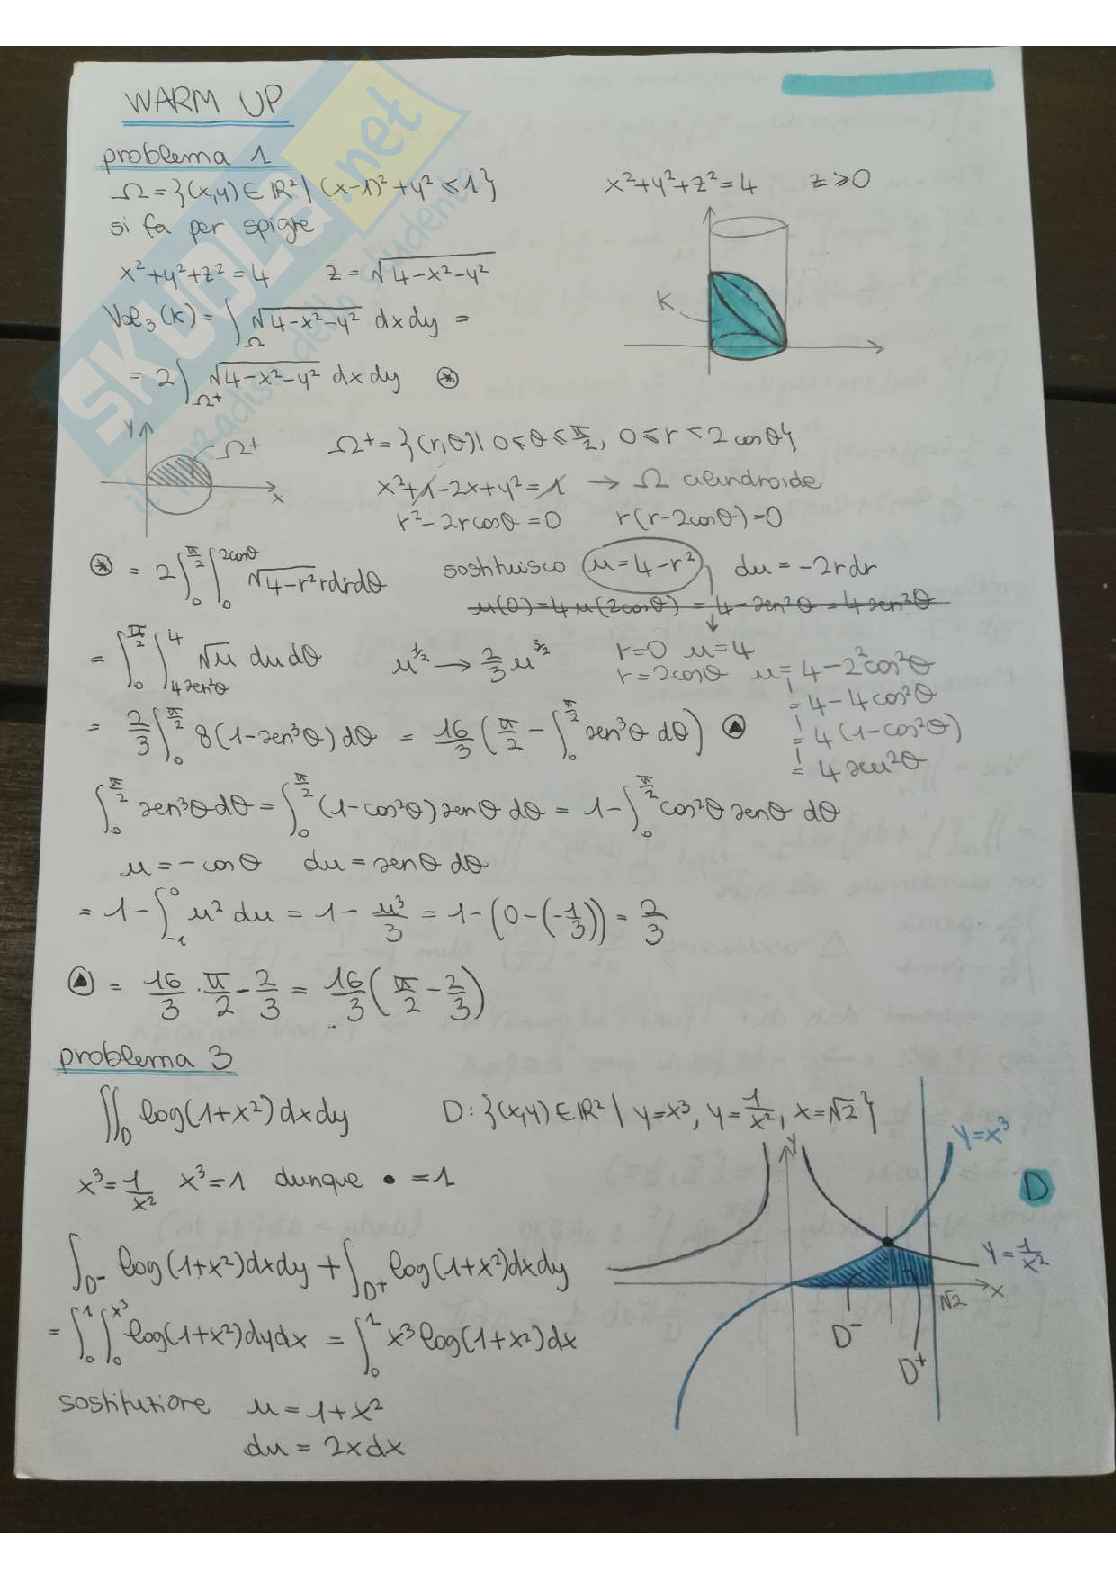 WARM UP
problema 1
Ω = {(x,y) ∈ ℝ² | (x-1)² + y² ≤ 1}
x²+y²+z² = 4 z ≥ 0
si fa per spigre
x²+y²+z² = 4 z = √(4-x²-y²)
Vol₃(K) = ∫_Ω √(4-x²-y²) dxdy =
K
= 2∫_Ω⁺ √(4-x²-y²) dxdy ⊛
y Ω⁺ x
Ω⁺ = {(r,θ) | 0 ≤ θ ≤ π/2, 0 ≤ r ≤ 2cosθ}
x²+1-2x+y² = 1 → Ω cilindroide
r²-2rcosθ = 0 r(r-2cosθ) = 0
⊛ = 2∫_0^{π/2} ∫_0^{2cosθ} √(4-r²) r dr dθ sostituisco u = 4-r² du = -2rdr
u(0) = 4 u(2cosθ) = 4-sen²θ = 4sen²θ
= ∫_0^{π/2} ∫_{4sen²θ}^4 √u du dθ u^{1/2} → 2/3 u^{3/2} r=0 u=4
r=2cosθ u = 4-2²cos²θ
= 4-4cos²θ
= 4(1-cos²θ)
= 4sen²θ
= 2/3 ∫_0^{π/2} 8(1-sen³θ)dθ = 16/3 (π/2 - ∫_0^{π/2} sen³θ dθ) ▲
∫_0^{π/2} sen³θdθ = ∫_0^{π/2} (1-cos²θ)senθ dθ = 1-∫_0^{π/2} cos²θ senθ dθ
u = -cosθ du = senθ dθ
= 1-∫_{-1}^0 u² du = 1 - u³/3 = 1-(0-(-1/3)) = 2/3
▲ = 16/3 · π/2 - 2/3 = 16/3 (π/2 - 2/3)
problema 3
∬_D log(1+x²)dxdy D: {(x,y) ∈ ℝ² | y=x³, y=1/x², x=√2}
y=x³
x³ = 1/x² x³ = 1 dunque • = 1
D
y
∫_{D⁻} log(1+x²)dxdy + ∫_{D⁺} log(1+x²)dxdy
y = 1/x²
√2 x
= ∫_0^1 ∫_0^{x³} log(1+x²)dydx = ∫_0^1 x³log(1+x²)dx
D⁻
D⁺
sostituzione u = 1+x²
du = 2xdx
SKUOLA.net